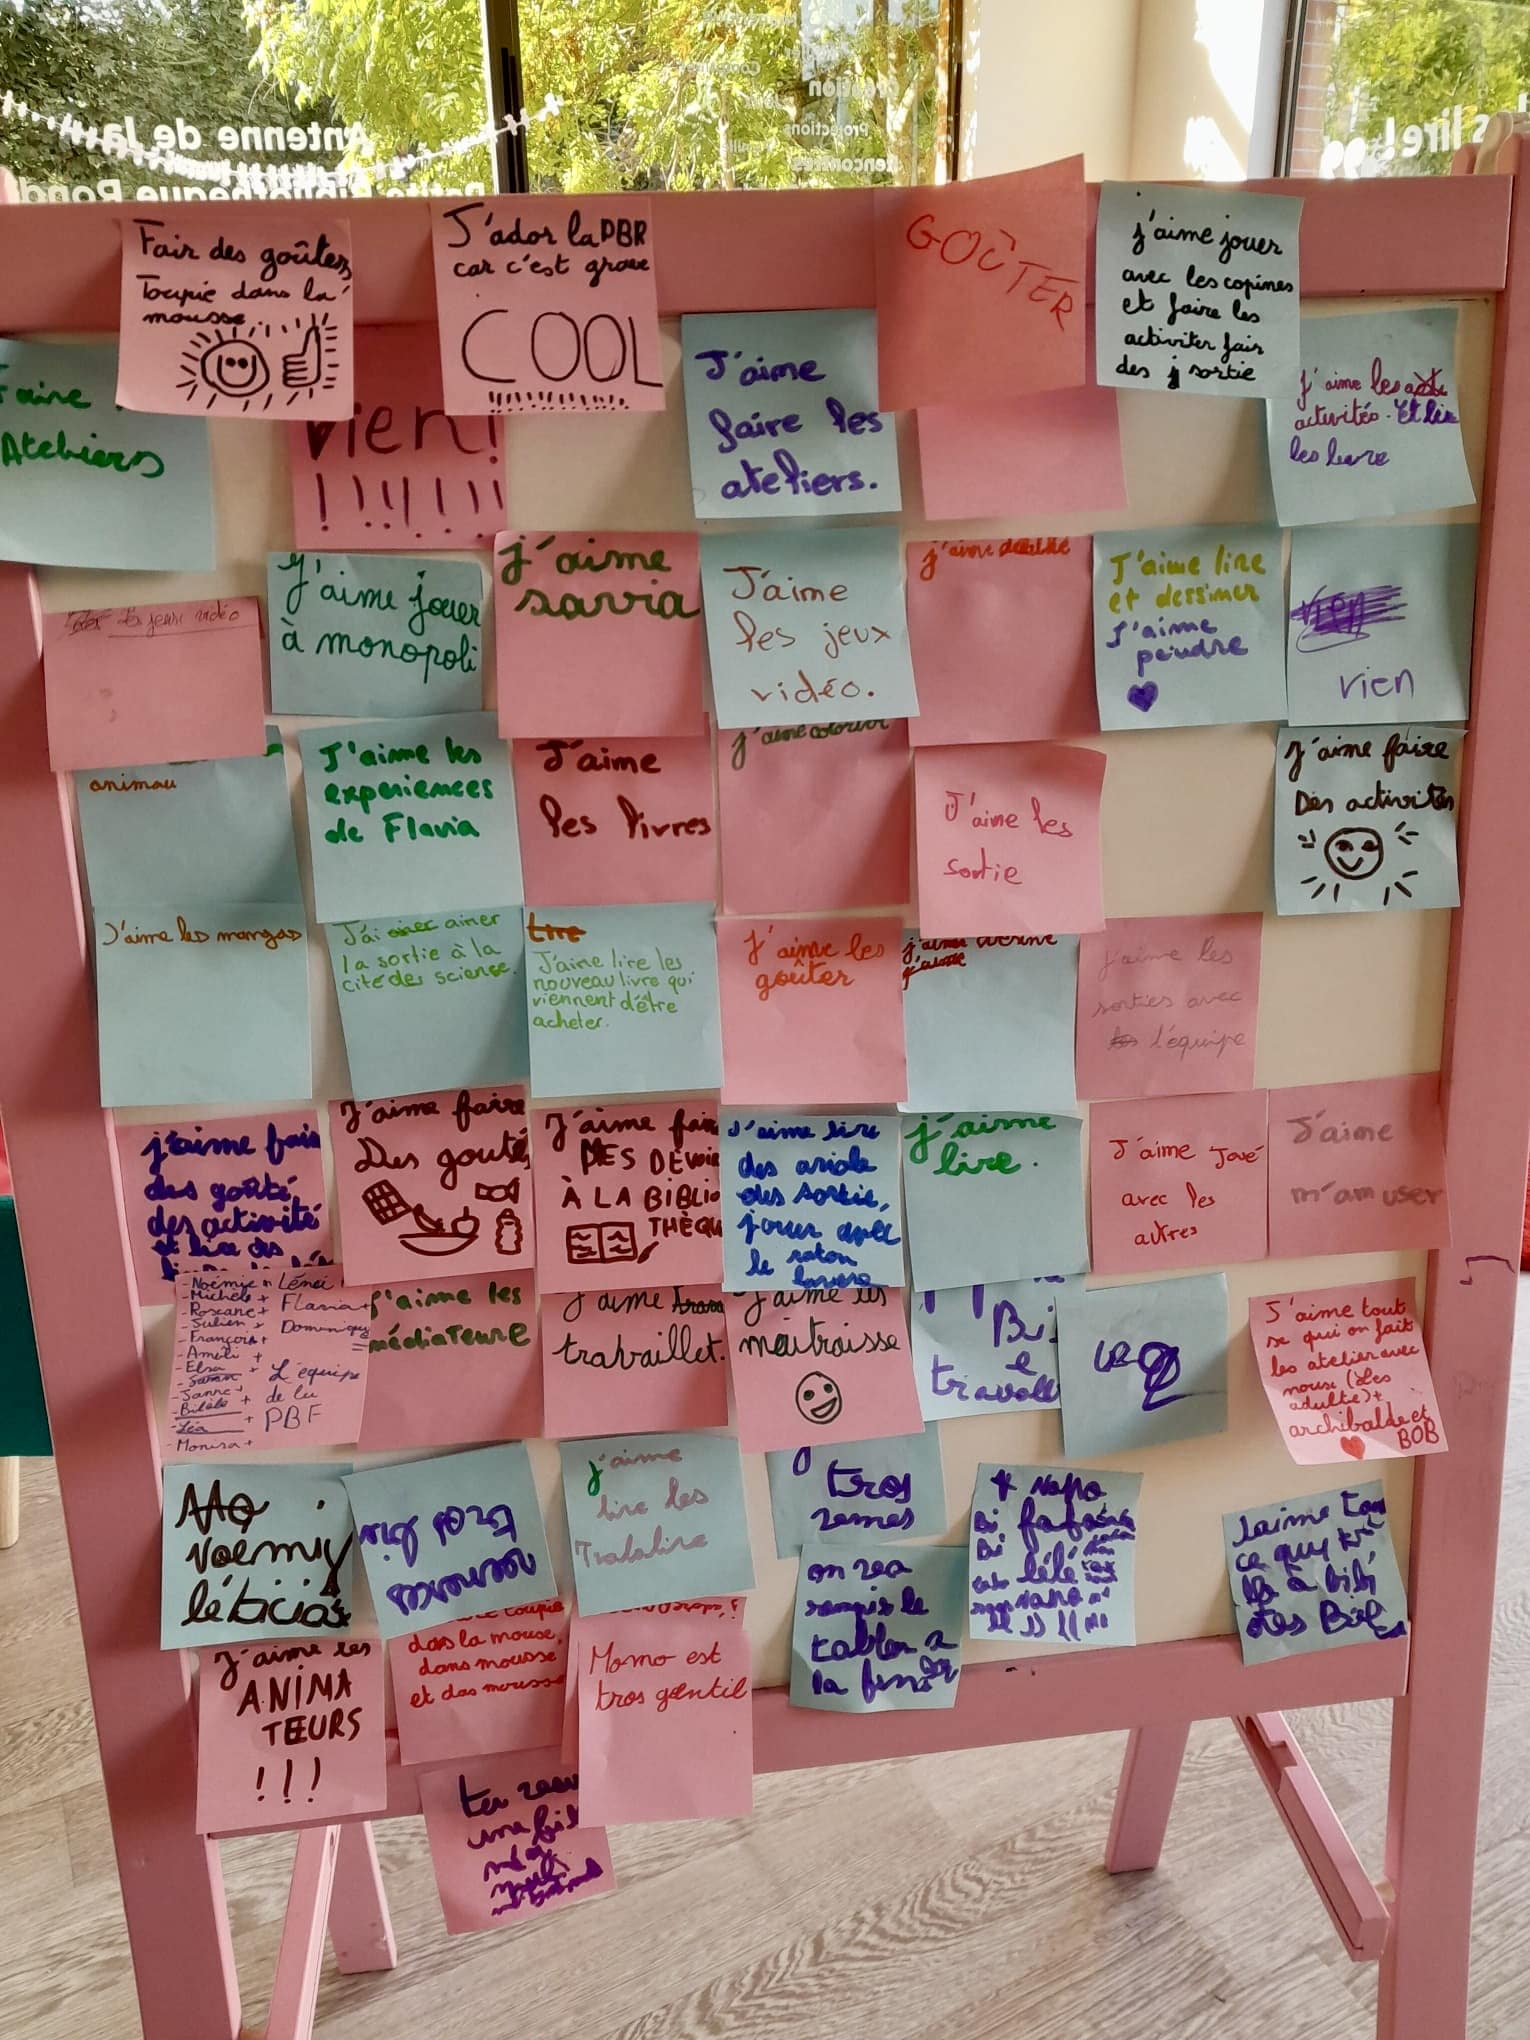 Antenne de la
Création
Projections
Rencontres
s lire !
Fair des goûters
Toupie dans la
mousse
J'ador la PBR
car c'est grave
COOL
GOÛTER
j'aime jouer
avec les copines
et faire les
activiter fair
des sortie
Faire
Ateliers
rien!
!!!!!!!
J'aime
faire les
ateliers.
J'aime les
activités. Et lire
les livre
Les jeux vidéo
J'aime jouer
à monopoli
j'aime
savia
J'aime
les jeux
vidéo.
j'aime
J'aime lire
et dessiner
J'aime
peindre
rien
rien
animau
J'aime les
experiences
de Flavia
J'aime
les livres
j'aime colorier
J'aime les
sortie
J'aime faire
Des activités
J'aime les mangas
J'ai aimer
la sortie à la
cité des science.
Lire
J'aime lire les
nouveau livre qui
viennent d'être
acheter.
J'aime les
goûter
j'aime
j'aime
j'aime les
sorties avec
l'équipe
j'aime fair
des goûté
des activité
et lire des
J'aime faire
Des goutés
J'aime faire
MES DEVOIR
À LA BIBLIO
THÈQUE
J'aime lire
des ariole
des sortie,
jouer avec
le raton
laveur
j'aime
lire.
J'aime Joué
avec les
autres
J'aime
m'amuser
- Noémie + Lénaï
- Michèle +
- Roxane + Flavia +
- Julien + Dominique
- François +
- Améli +
- Elsa + L'équipe
- Sarah + de la
- Sanna + PBF
- Bilèle +
- Léa +
- Monisa +
j'aime les
médiateure
J'aime
travaillet.
J'aime les
maitraisse
Bi
e
travaill
J'aime tout
se qui on fait
les atelier avec
nouse (Les
adulte) +
archibalde et
BOB
Noemiy
léticia
j'aime
lire les
tros
zemes
on zea
rempis le
tablea a
la
+ Nafo
Bi
Bi lélé
nano
Jaime tou
ce quy
a bibi
otes
J'aime les
ANIMA
TEURS
!!!
toupie
dans la mouse,
dans mousse
et das mousse
Momo est
tros gentil
una